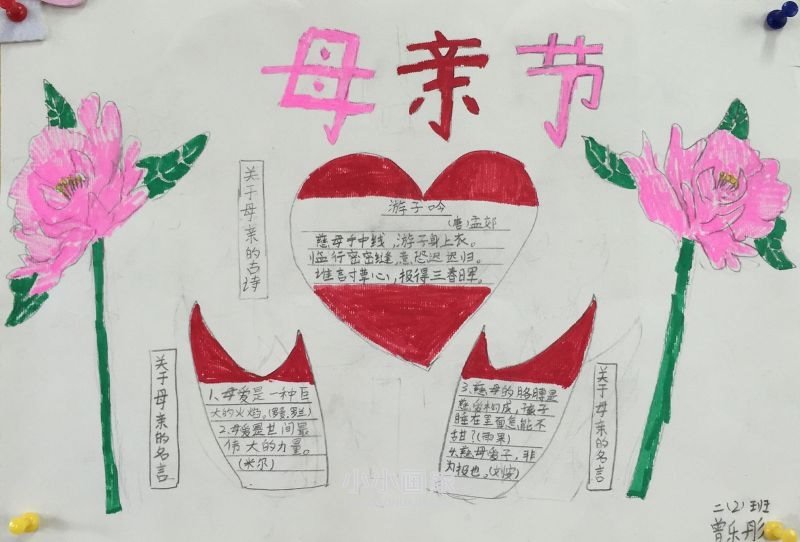 母亲节
关于母亲的古诗
游子吟
(唐)孟郊
慈母手中线,游子身上衣。
临行密密缝,意恐迟迟归。
谁言寸草心,报得三春晖。
关于母亲的名言
1、母爱是一种巨
大的火焰。(罗曼.罗兰)
2、母爱是世间最
伟大的力量。
(米尔)
3、慈母的胳膊是
慈爱构成,孩子
睡在里面怎能不
甜?(雨果)
4、慈母爱子,非
为报也。(刘安)
关于母亲的名言
二(2)班
曾乐彤
小小画家